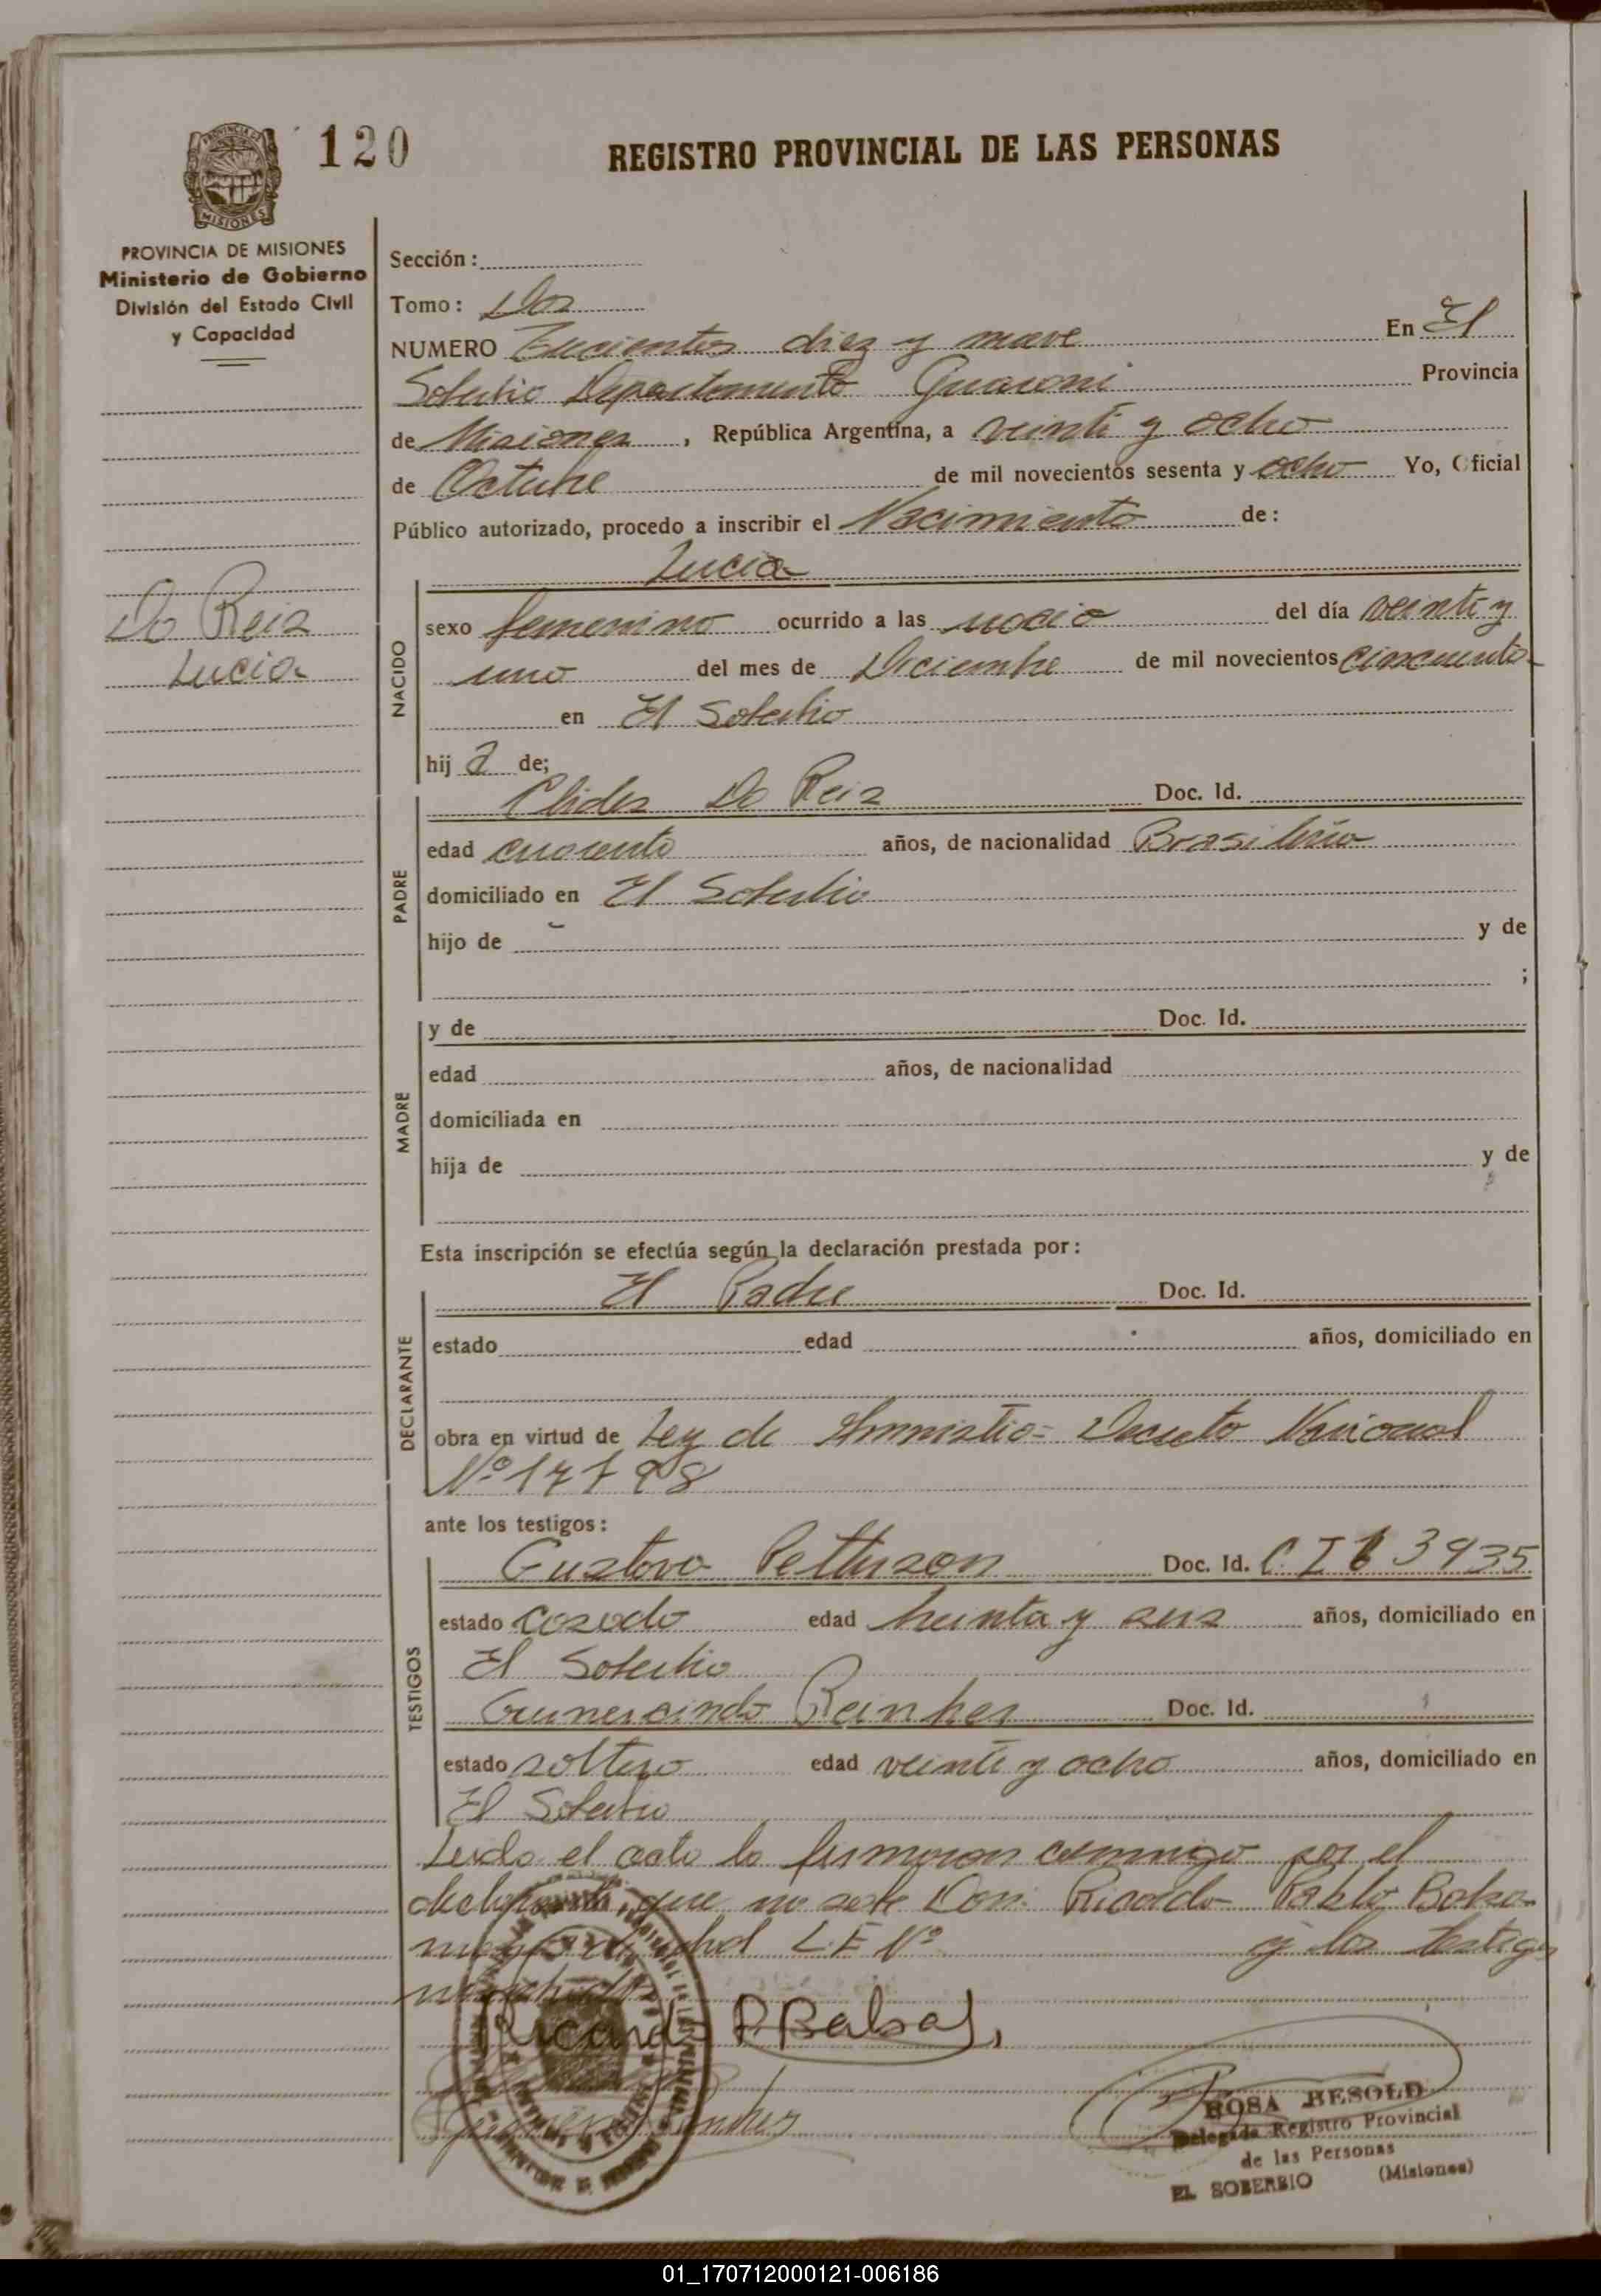 120
REGISTRO PROVINCIAL DE LAS PERSONAS
PROVINCIA DE MISIONES
Ministerio de Gobierno
División del Estado Civil
y Capacidad
Sección:
Tomo: Dos
NUMERO diez y nueve En El
Soberbio Departamento Guarani Provincia
de Misiones, República Argentina, a veinti y ocho
de Octubre de mil novecientos sesenta y ocho Yo, Oficial
Público autorizado, procedo a inscribir el Nacimiento de:
Lucia
Do Reis
Lucia
NACIDO
sexo femenino ocurrido a las del día veinti y
uno del mes de Diciembre de mil novecientos cincuenta
en El Soberbio
hija de;
PADRE
Do Reis Doc. Id.
edad cuarenta años, de nacionalidad Brasileña
domiciliado en El Soberbio
hijo de y de
;
MADRE
y de Doc. Id.
edad años, de nacionalidad
domiciliada en
hija de y de
Esta inscripción se efectúa según la declaración prestada por:
DECLARANTE
El Padre Doc. Id.
estado edad años, domiciliado en
obra en virtud de Ley de Amnistia= Decreto Nacional
Nº 17798
ante los testigos:
TESTIGOS
Gustavo Doc. Id. C I 3935
estado casado edad treinta y seis años, domiciliado en
El Soberbio
Gumercindo Reinher Doc. Id.
estado soltero edad veinti y ocho años, domiciliado en
El Soberbio
Leida el acta la firmaron conmigo por el
que no sabe Don: Ricardo Pablo Balsa
L.E Nº y los testigos
Ricardo P. Balsa
ROSA BESOLD
Delegada Registro Provincial
de las Personas
EL SOBERBIO (Misiones)
01_170712000121-006186